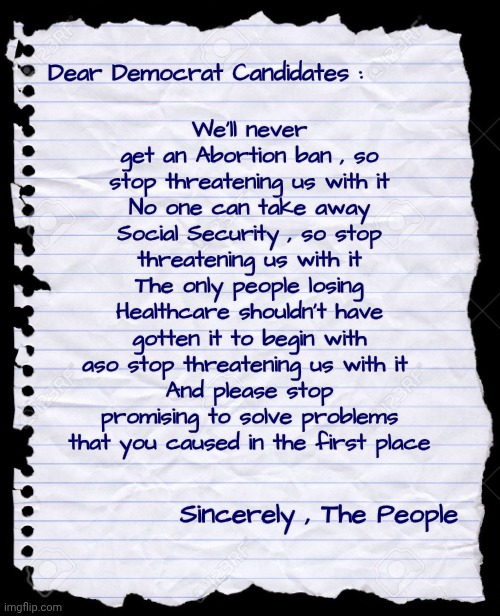 Dear Democrat Candidates :
We'll never
get an Abortion ban , so
stop threatening us with it
No one can take away
Social Security , so stop
threatening us with it
The only people losing
Healthcare shouldn't have
gotten it to begin with
aso stop threatening us with it
And please stop
promising to solve problems
that you caused in the first place
Sincerely , The People
imgflip.com